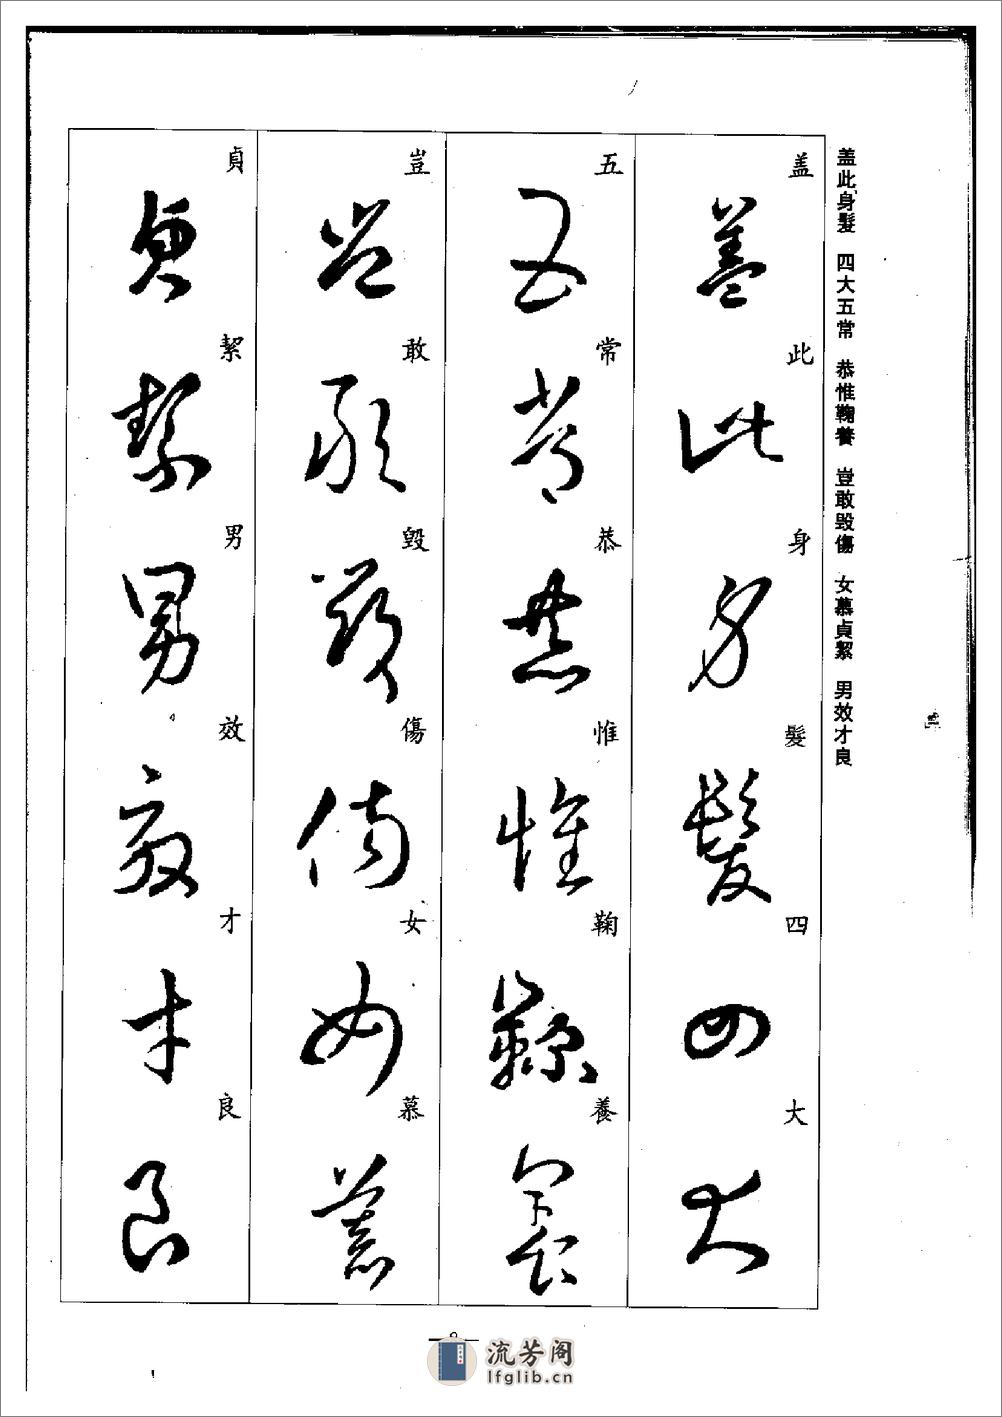 盖此身髮　四大五常　恭惟鞠養　豈敢毁傷　女慕貞絜　男效才良
盖此身髮四大
五常恭惟鞠養
豈敢毁傷女慕
貞絜男效才良
流芳阁
lfglib.cn